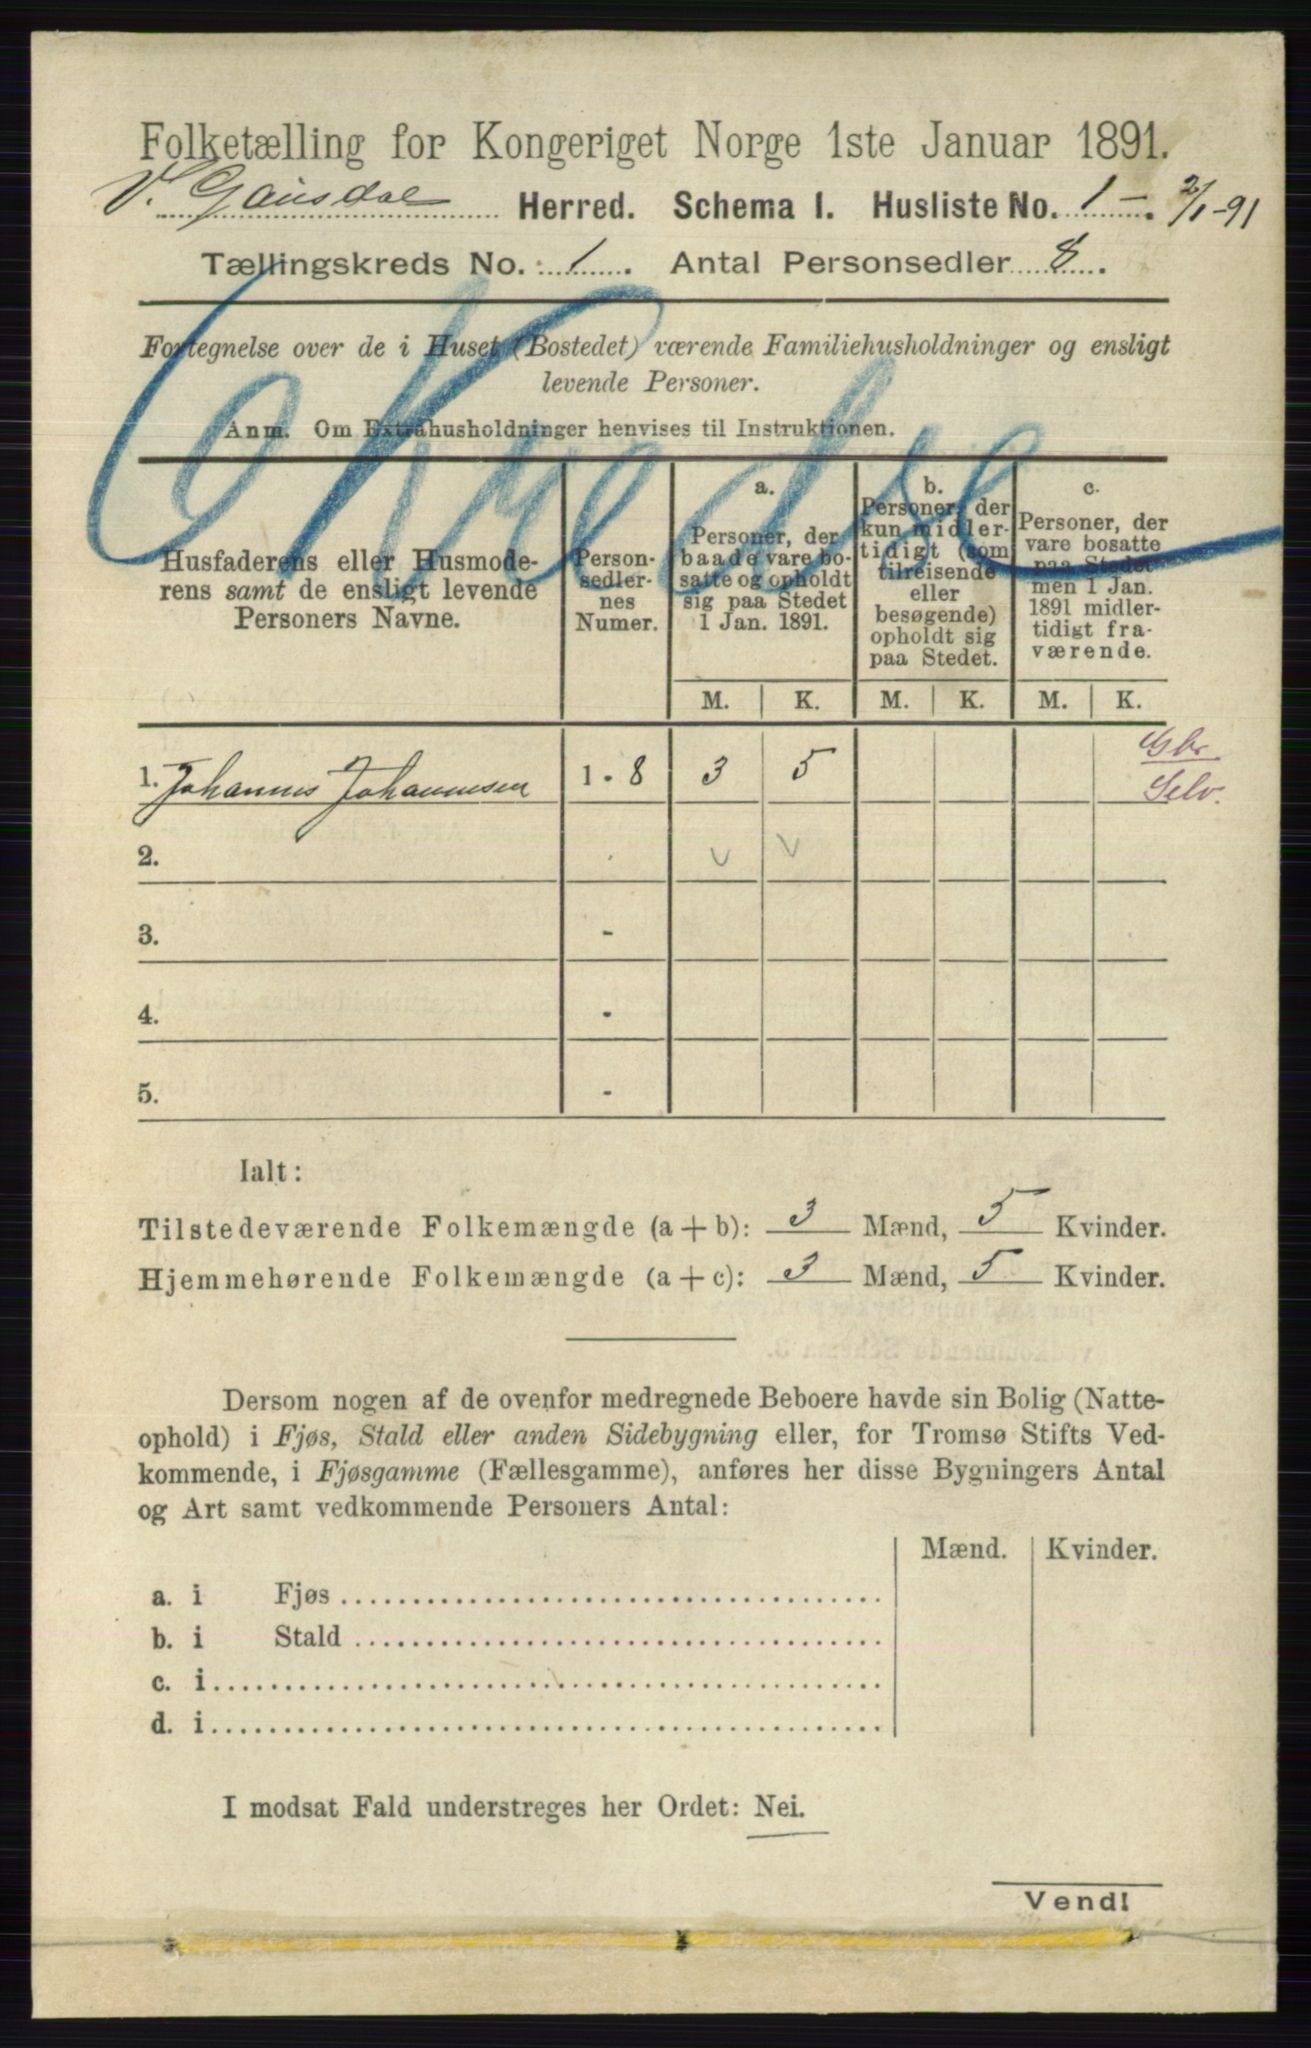 Folketælling for Kongeriget Norge 1ste Januar 1891.
V. Gausdal Herred. Schema I. Husliste No. 1 - 2/1-91
Tællingskreds No. 1. Antal Personsedler 8.
Fortegnelse over de i Huset (Bostedet) værende Familiehusholdninger og ensligt
levende Personer.
Anm. Om Extrahusholdninger henvises til Instruktionen.
Husfaderens eller Husmode-
rens samt de ensligt levende
Personers Navne.
Person-
sedler-
nes
Numer.
a.
Personer, der
baade vare bo-
satte og opholdt
sig paa Stedet
1 Jan. 1891.
b.
Personer, der
kun midler-
tidigt (som
tilreisende
eller
besøgende)
opholdt sig
paa Stedet.
c.
Personer, der
vare bosatte
paa Stedet
men 1 Jan.
1891 midler-
tidigt fra-
værende.
M. K. M. K. M. K.
1. Johannes Johannesen 1 - 8 3 5 Gbr
Selv.
2.
3. -
4. -
5. -
Ialt:
Tilstedeværende Folkemængde (a + b): 3 Mænd, 5 Kvinder.
Hjemmehørende Folkemængde (a + c): 3 Mænd, 5 Kvinder.
Dersom nogen af de ovenfor medregnede Beboere havde sin Bolig (Natte-
ophold) i Fjøs, Stald eller anden Sidebygning eller, for Tromsø Stifts Ved-
kommende, i Fjøsgamme (Fællesgamme), anføres her disse Bygningers Antal
og Art samt vedkommende Personers Antal:
Mænd. Kvinder.
a. i Fjøs
b. i Stald
c. i
d. i
I modsat Fald understreges her Ordet: Nei.
Vend!